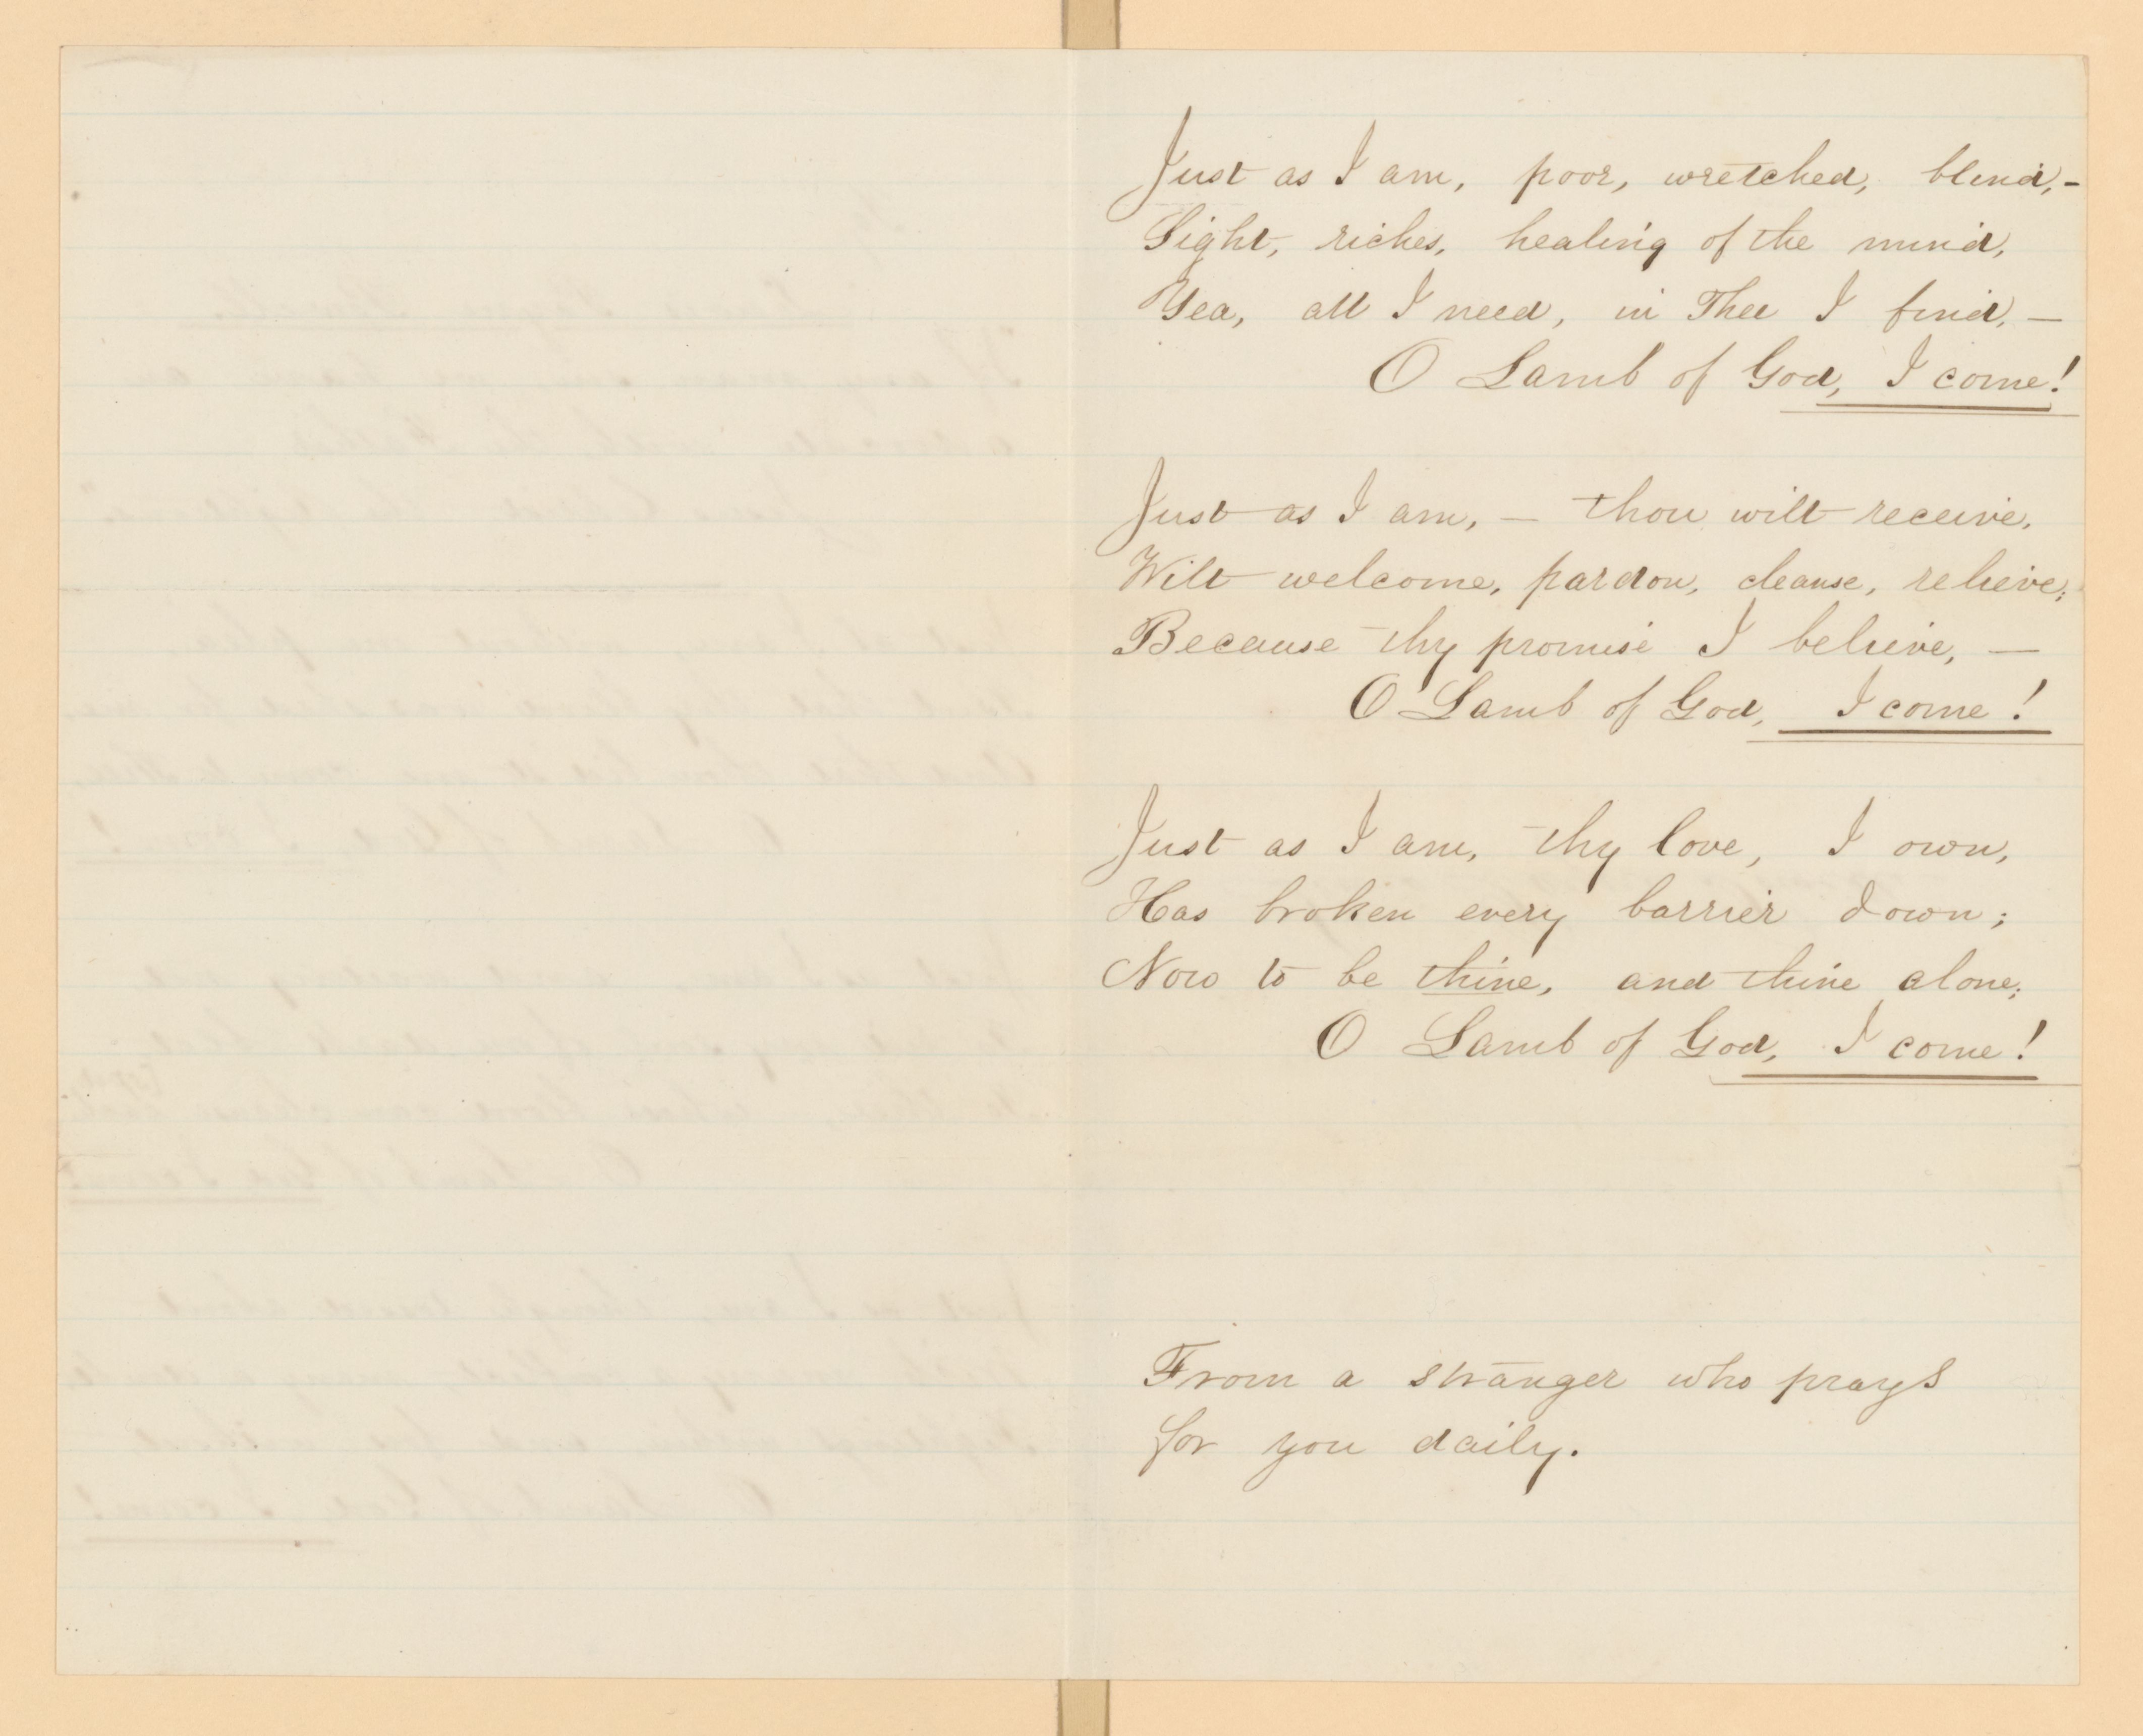 Just as I am, poor, wretched, blind,-
Sight, riches, healing of the mind,
Yea, all I need, in Thee I find, —
O Lamb of God, I come!
Just as I am, — thou wilt receive,
Wilt welcome, pardon, cleanse, relieve;
Because thy promise I believe, —
O Lamb of God, I come!
Just as I am, thy love, I own,
Has broken every barrier down;
Now to be thine, and thine alone;
O Lamb of God, I come!
From a stranger who prays
for you daily.